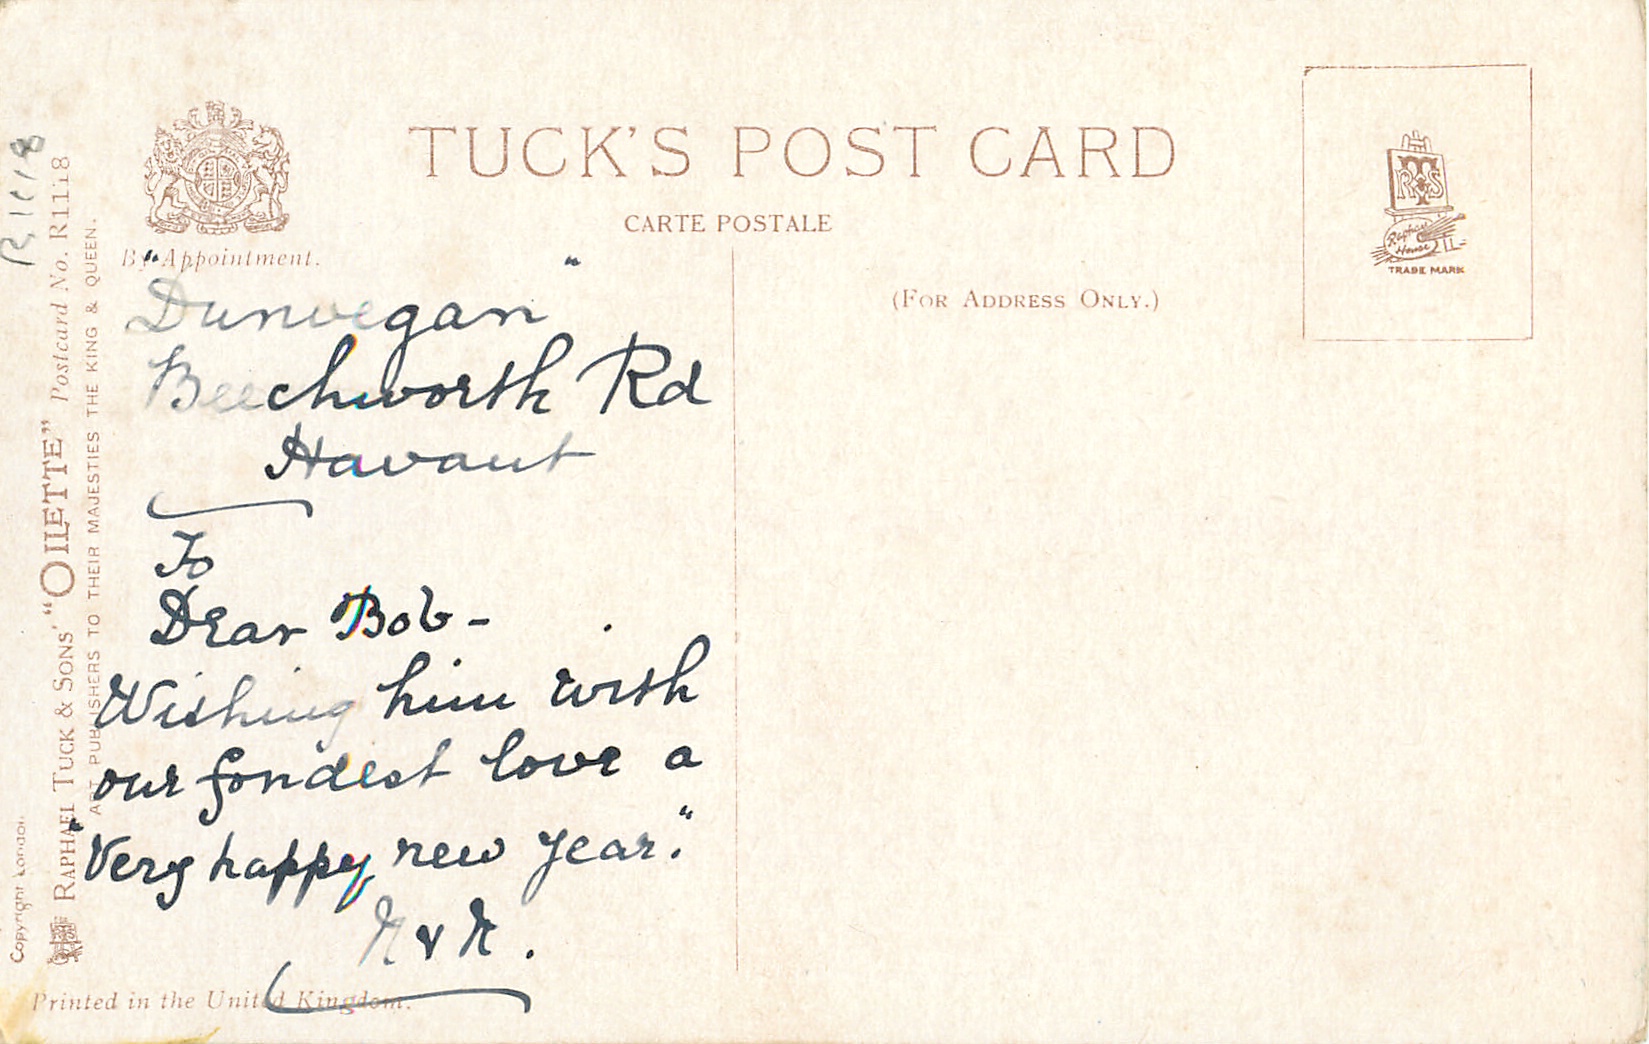 TUCK'S POST CARD
CARTE POSTALE
(FOR ADDRESS ONLY.)
By Appointment.
"Dunvegan"
Beechworth Rd
Havant
To
Dear Bob -
Wishing him with
our fondest love a
"Very happy new year."
Printed in the United Kingdom.
R1118
RAPHAEL TUCK & SONS' "OILETTE" Postcard No. R1118
ART PUBLISHERS TO THEIR MAJESTIES THE KING & QUEEN.
Copyright London
Raphael
House
TRADE MARK